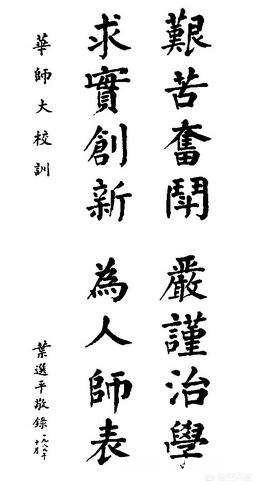 艱苦奮鬥 嚴謹治學
求實創新 為人師表
華師大校訓
葉選平敬錄